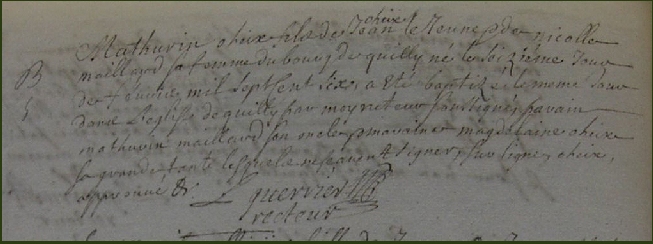 choix
Mathurin choix fils de Jean le Jeune et de nicolle
B maillard sa femme du bourg de quilly né le seizième Jour
de fevrier mil sept sent six, a eté baptizé le meme Jour
dans L'eglise de quilly par moy recteur soussigné, parain
mathurin maillard son oncle, maraine magdelaine choix
sa grande tante lesquels ne scavent signer, sur ligne, choix,
approuvé &c. L guerrier
recteur